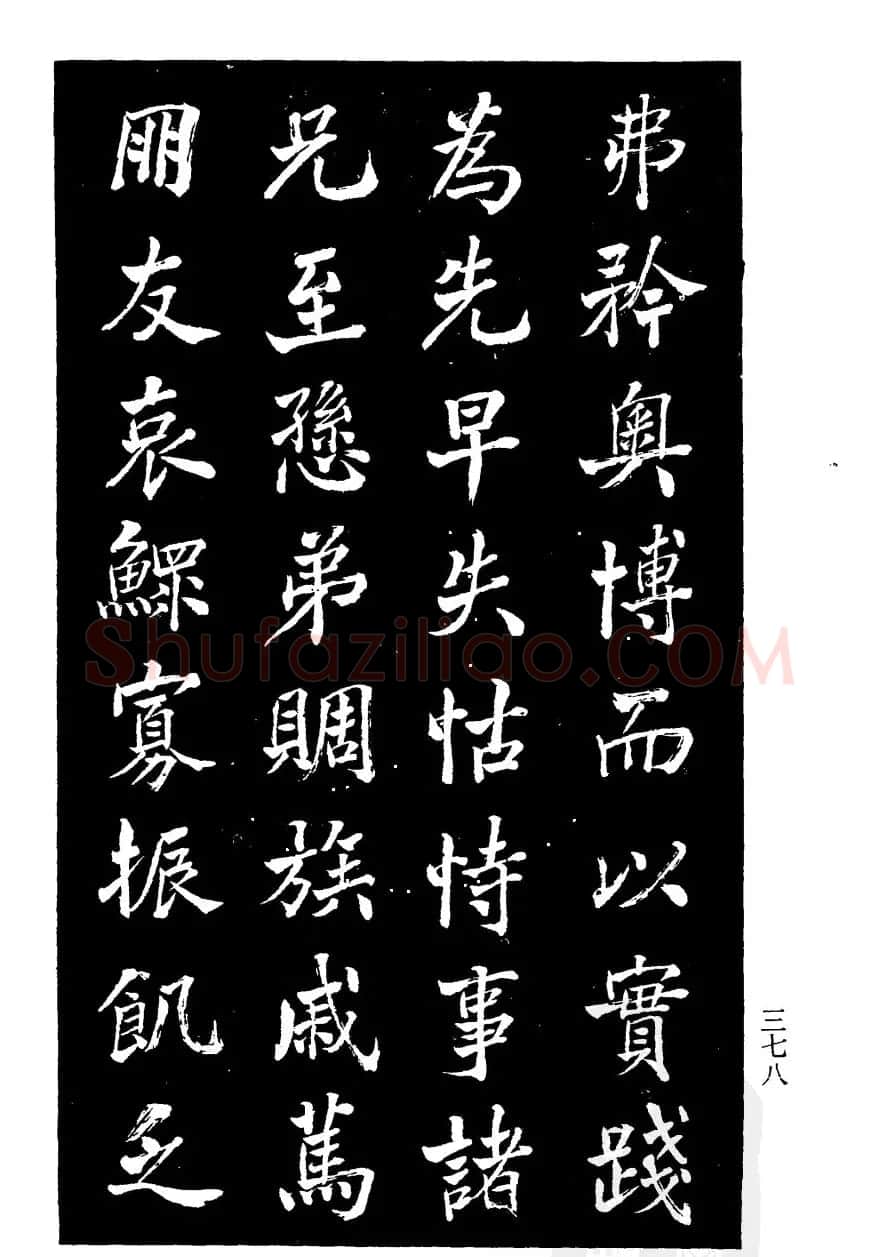 弗矜奧博而以實踐
為先早失怙恃事諸
兄至懸弟賙族戚篤
朋友哀鰥寡振飢乏
三七八
Shufaziliao.COM